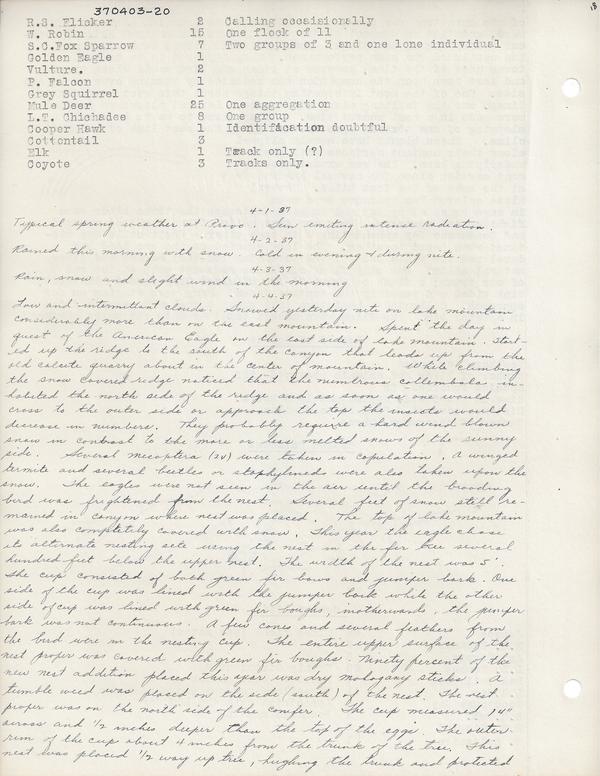 18
370403-20
R.S. Flicker 2 Calling occaisionally
W. Robin 15 One flock of 11
S.C.Fox Sparrow 7 Two groups of 3 and one lone individual
Golden Eagle 1
Vulture. 2
P. Falcon 1
Grey Squirrel 1
Mule Deer 25 One aggregation
L.T. Chichadee 8 One group
Cooper Hawk 1 Identification doubtful
Cottontail 3
Elk 1 Track only (?)
Coyote 3 Tracks only.
4-1-37
Typical spring weather at Provo. Sun emiting intense radiation.
4-2-37
Rained this morning with snow. Cold in evening & during nite.
4-3-37
Rain, snow and slight wind in the morning
4-4-37
Low and intermittant clouds. Snowed yesterday nite on lake mountain
considerably more than on the east mountain. Spent the day in
quest of the American Eagle on the east side of lake mountain. Start-
ed up the ridge to the south of the canyon that leads up from the
old calcite quarry about in the center of mountain. While climbing
the snow covered ridge noticed that the numtrous collembola in-
habited the north side of the ridge and as soon as one would
cross to the outer side or approach the top the insects would
decrease in numbers. They probably requirre a hard wind blown
snow in contrast to the more or less melted snows of the sunny
side. Several mecoptera (2V) were taken in copulation. A winged
termite and several beetles or staphylineds were also taken upon the
snow. The eagles were not seen in the air until the brooding
bird was frightened from the nest. Several feet of snow still re-
mained in canyon where nest was placed. The top of lake mountain
was also completely covered with snow. This year the eagle chose
its alternate nesting site using the nest in the fir tree several
hundred feet below the upper nest. The width of the nest was 5'
The cup consisted of both green fir bows and juniper bark. One
side of the cup was lined with the juniper bark while the other
side of cup was lined with green fir boughs, inotherwards, the juniper
bark was not continuous. A few cones and several feathers from
the bird were in the nesting cup. The entire upper surface of the
nest proper was covered with green fir boughs. Ninety percent of the
new nest addition placed this year was dry mahogany sticks. A
tumble weed was placed on the side (south) of the nest. The nest
proper was on the north side of the conifer. The cup measured 14"
across and 1/2 inches deeper than the top of the eggs. The outer
rim of the cup about 4 inches from the trunk of the tree. This
nest was placed 1/2 way up tree, hughing the trunk and protected